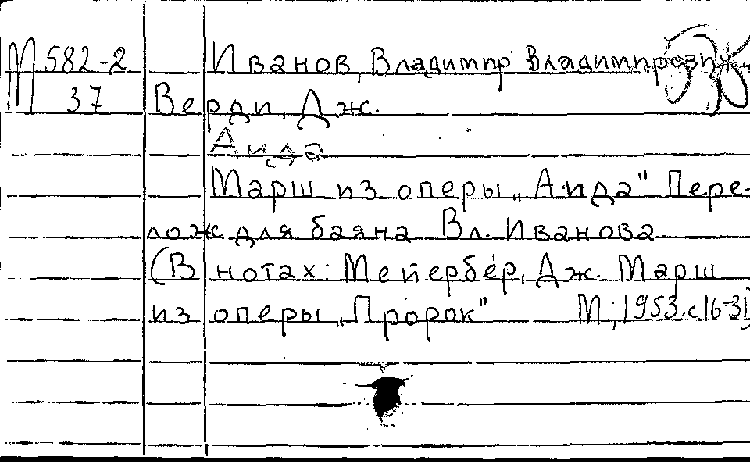 М 582-2 Иванов, Владимир Владимирович
37 Верди, Дж.
Аида
Марш из оперы „Аида" Пере-
лож. для баяна Вл. Иванова
(В нотах: Мейербер, Дж. Марш
из оперы „Пророк" М., 1953. с. 16-31)